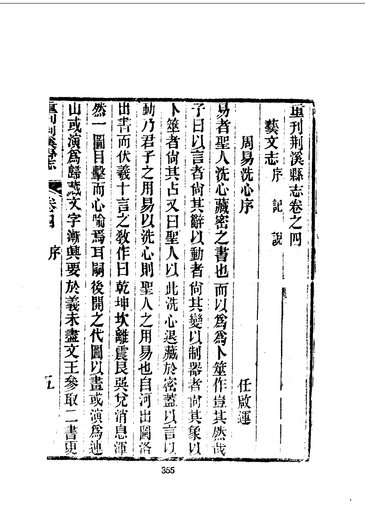 重刊荆溪縣志卷之四
藝文志 序 記 說
周易洗心序
任啟運
易者聖人洗心藏密之書也而以爲爲卜筮作豈其然哉
子曰以言者尙其辭以動者尙其變以制器者尙其象以
卜筮者尙其占又曰聖人以此洗心退藏於密蓋以言以
動乃君子之用易以洗心則聖人之用易也自河出圖洛
出書而伏羲十言之教作曰乾坤坎離震艮巽兌消息渾
然一圖目擊而心喻焉耳嗣後開之代圖以畫或演爲連
山或演爲歸藏文字漸興要於義未盡文王參取二書更
重刊荆溪縣志
卷四
序
五
355